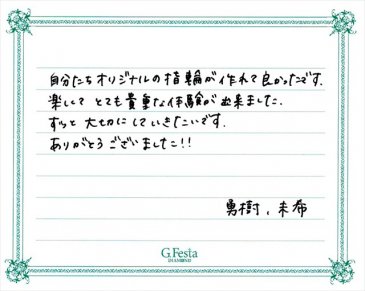 自分たちオリジナルの指輪が作れて良かったです.
楽しくて とても貴重な体験が出来ました.
ずっと 大切にしていきたいです.
ありがとうございました!!
勇樹、未希
G.Festa
DIAMOND